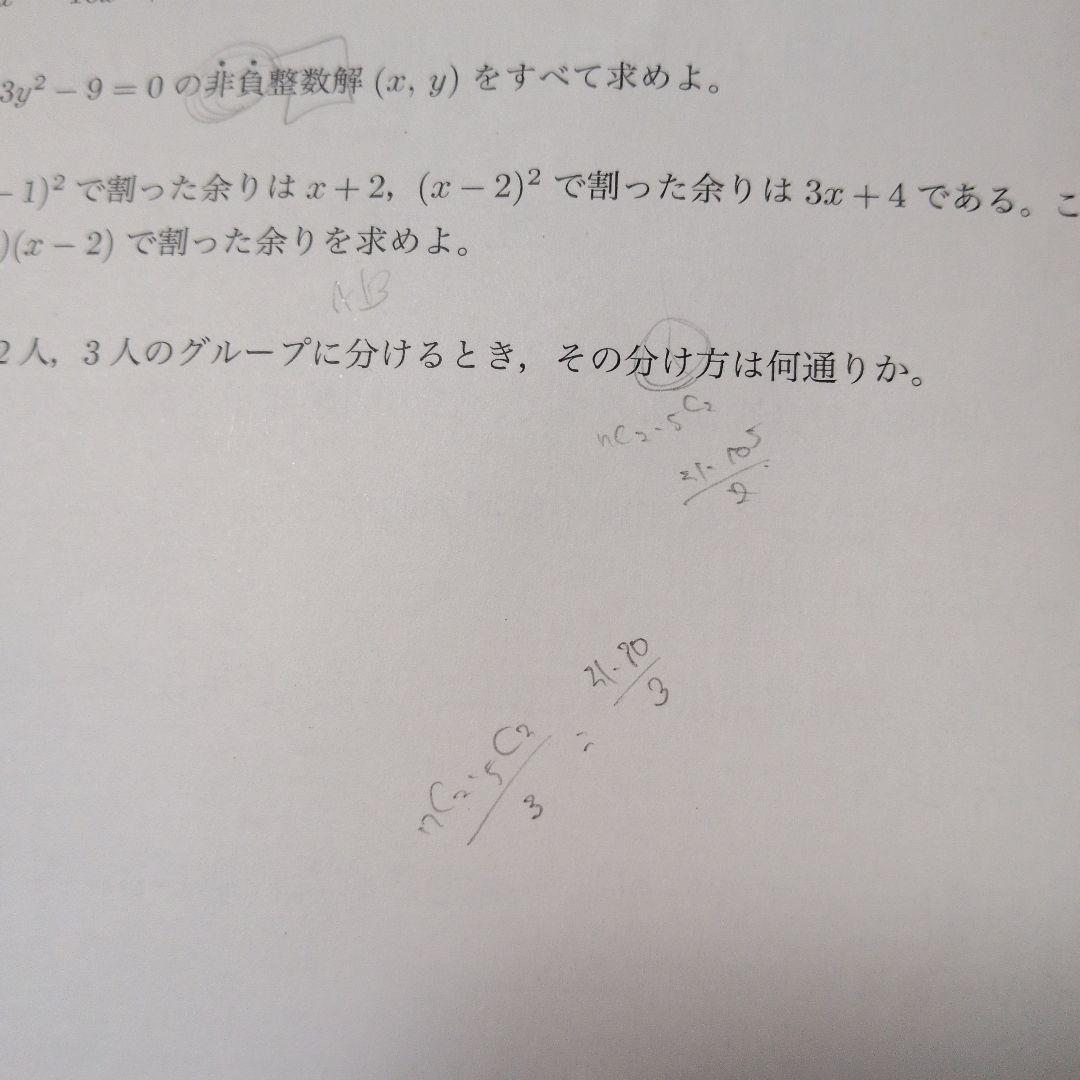 3y² − 9 = 0 の非負整数解 (x, y) をすべて求めよ。
− 1)² で割った余りは x + 2, (x − 2)² で割った余りは 3x + 4 である。こ
)(x − 2) で割った余りを求めよ。
AB
2 人, 3 人のグループに分けるとき, その分け方は何通りか。
₇C₂ · ₅C₂
21 · 10 5 / 2
₇C₂ · ₅C₂ / 3 = 21 · 10 / 3